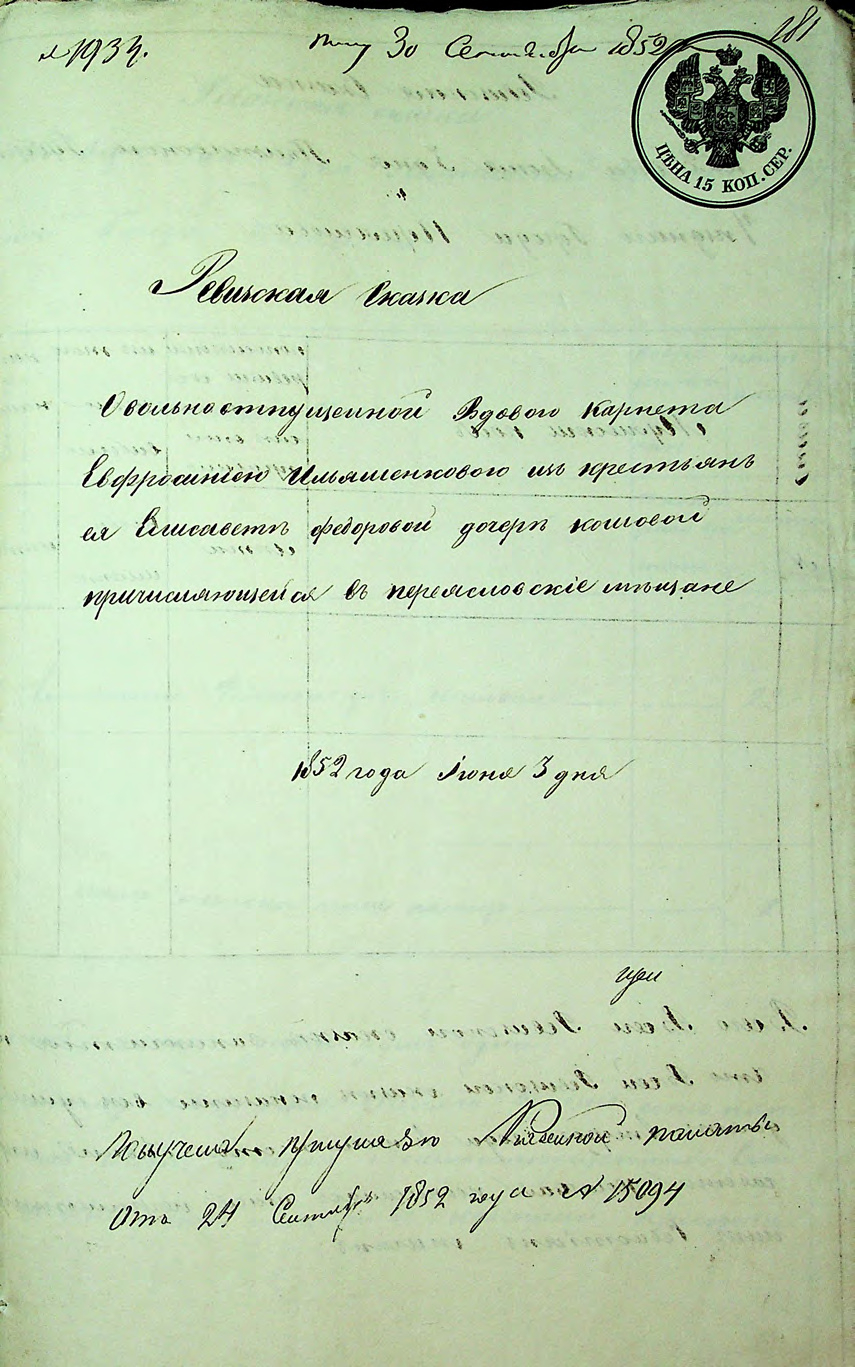 № 1934.
30 Сентября 1852
181
ЦѢНА 15 КОП. СЕР.
Ревизская Сказка
О вольноотпущенной Вдовою Карнета
Евфросиніею Ильяшенковою изъ крестьянъ
ея Елисаветѣ Федоровой дочерѣ Кошовой
причисляющейся въ переясловскіе мѣщане
1852 года Іюня 3 дня
при
Получена при указѣ Казенной палаты
Отъ 24 Сентября 1852 года № 15094